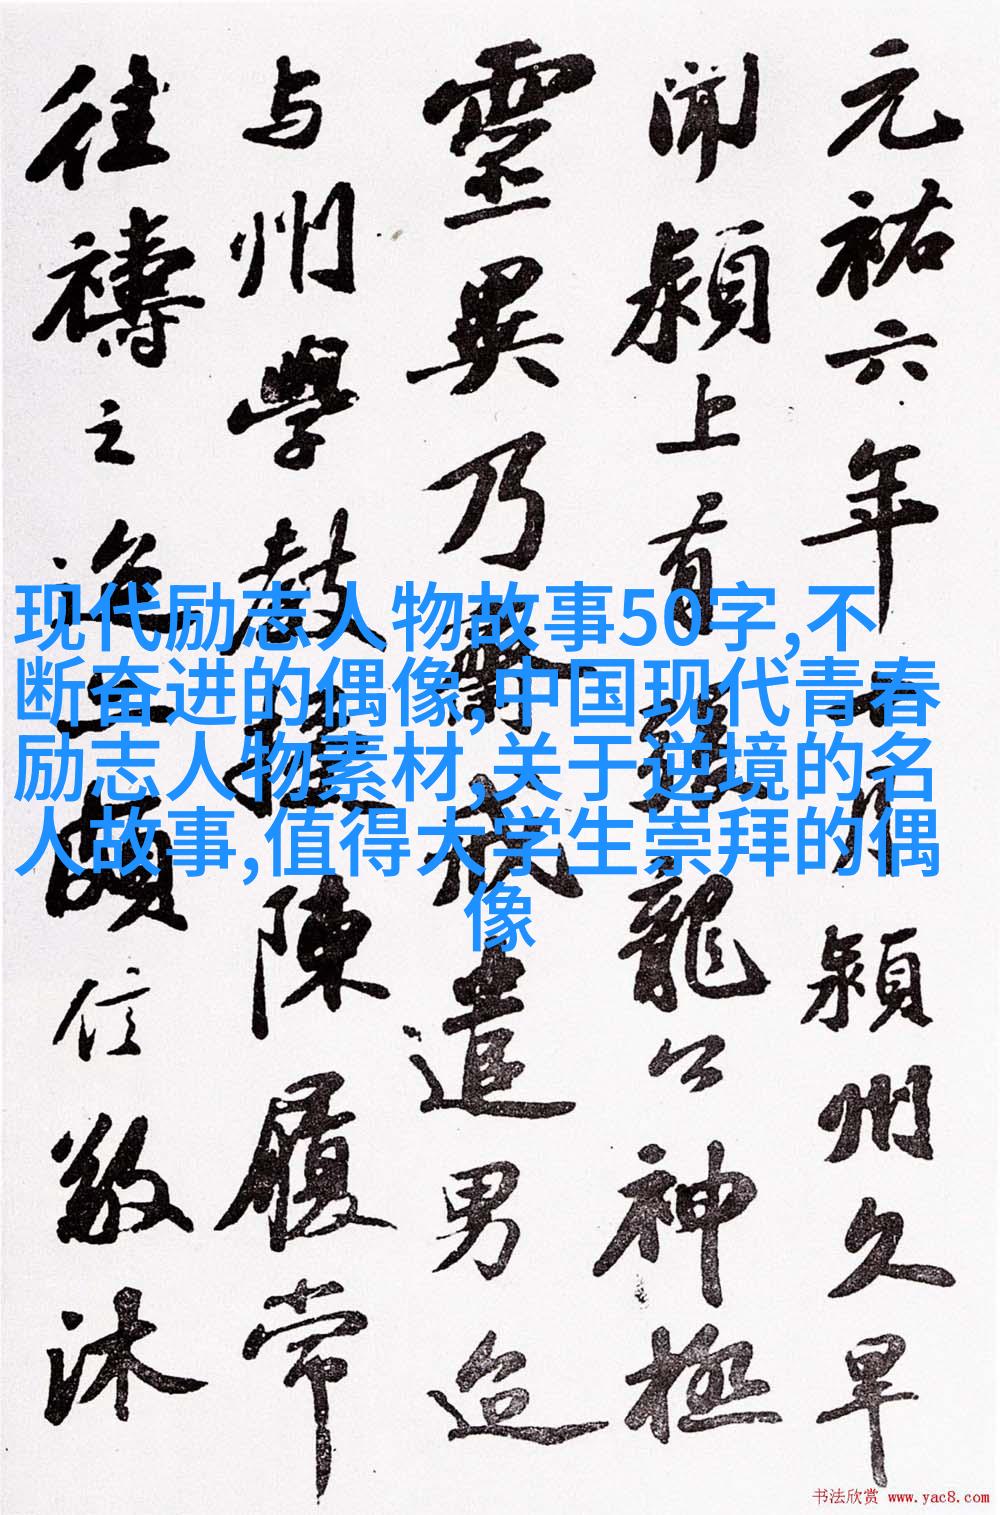 元祐六年十月潁州久旱
聞潁上有張龍公神極
靈異乃齋戒遣男迨
与州學教授陳履常
往禱之迨亦頗信敬沐
现代励志人物故事50字,不
断奋进的偶像,中国现代青春
励志人物素材,关于逆境的名
人故事,值得大学生崇拜的偶
像
书法欣赏 www.yac8.com